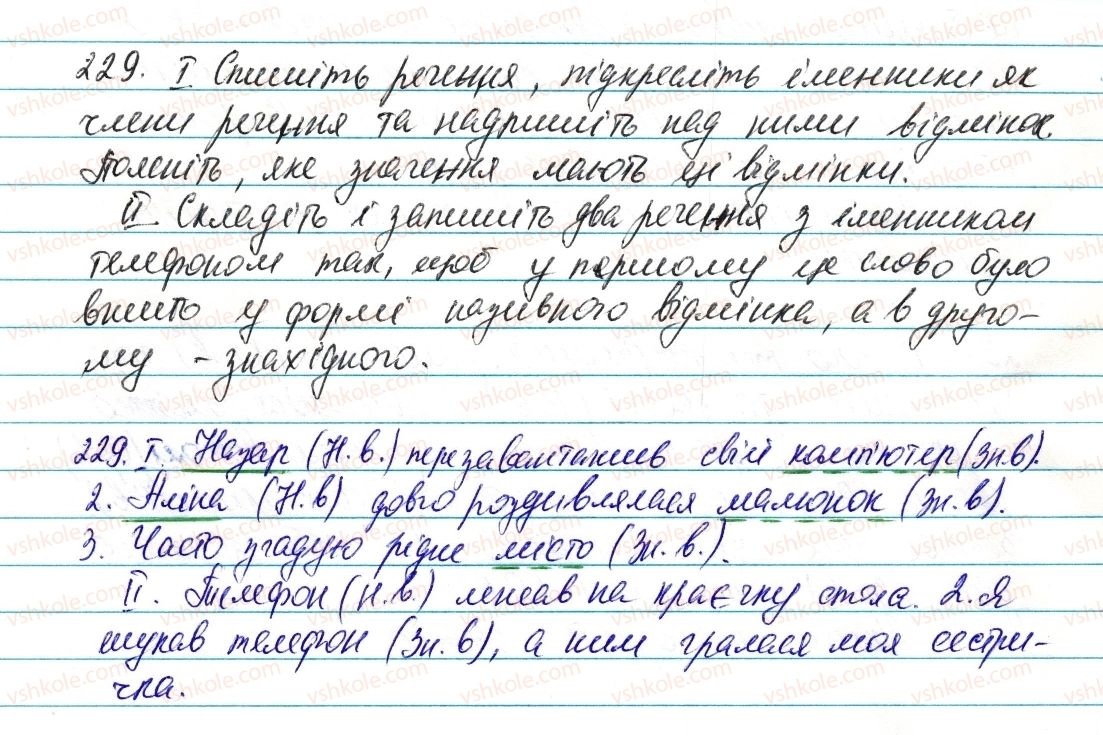 229. I Спишіть речення, підкресліть іменники як
члени речення та надпишіть над ними відмінок.
Поясніть, яке значення мають ці відмінки.
II. Складіть і запишіть два речення з іменником
телефоном так, щоб у першому це слово було
вжито у формі називного відмінка, а в друго-
му - знахідного.
229. I. Назар (Н. в.) перезавантажив свій комп'ютер (Зн.в).
2. Аліна (Н. в) довго роздивлялася малюнок (Зн. в).
3. Часто згадую рідне місто (Зн. в.).
II. Телефон (Н. в.) лежав на краєчку стола. 2. Я
шукав телефон (Зн. в), а ним гралася моя сестри-
чка.
vshkole.com